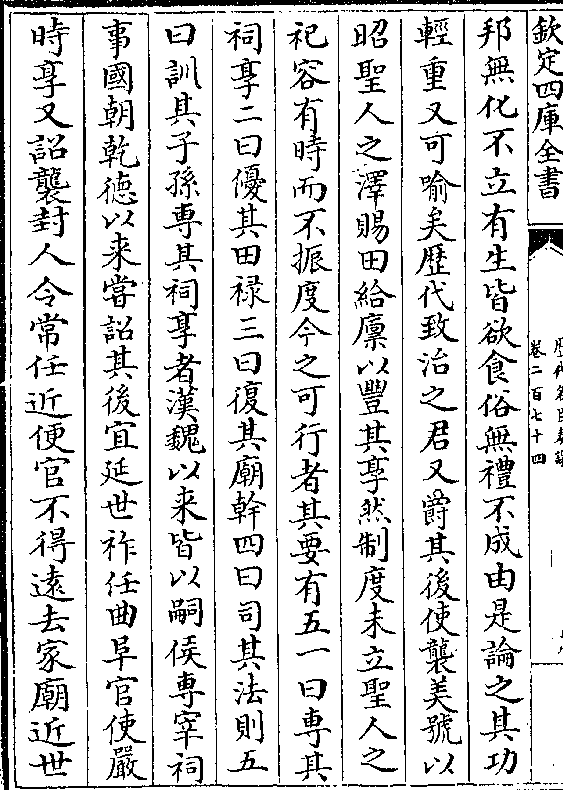 欽定四庫全書
卷二百七十四
邦無化不立有生皆欲食俗無禮不成由是論之其功
輕重又可喻矣歴代致治之君又爵其後使襲美號以
昭聖人之澤賜田給廩以豐其享然制度未立聖人之
祀容有時而不振度今之可行者其要有五一曰專其
祠享二曰優其田禄三曰復其廟幹四曰司其法則五
曰訓其子孫専其祠享者漢魏以来皆以嗣侯專宰祠
事國朝乾德以来嘗詔其後宜延世祚任曲阜官使嚴
時享又詔襲封人令常任近便官不得逺去家廟近世